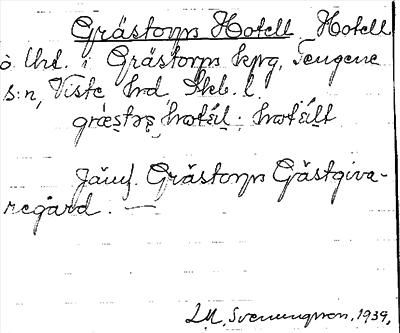 Grästorps Hotell Hotell
å Utl. i Grästorps kpg, Tengene
s:n, Viste hd Skb. l.
græ̣stɔrp̣s hot𝑒́l : hot𝑒́llt
Jämf. Grästorps Gästgiva-
regård. —
I.M. Svenungsson, 1939,